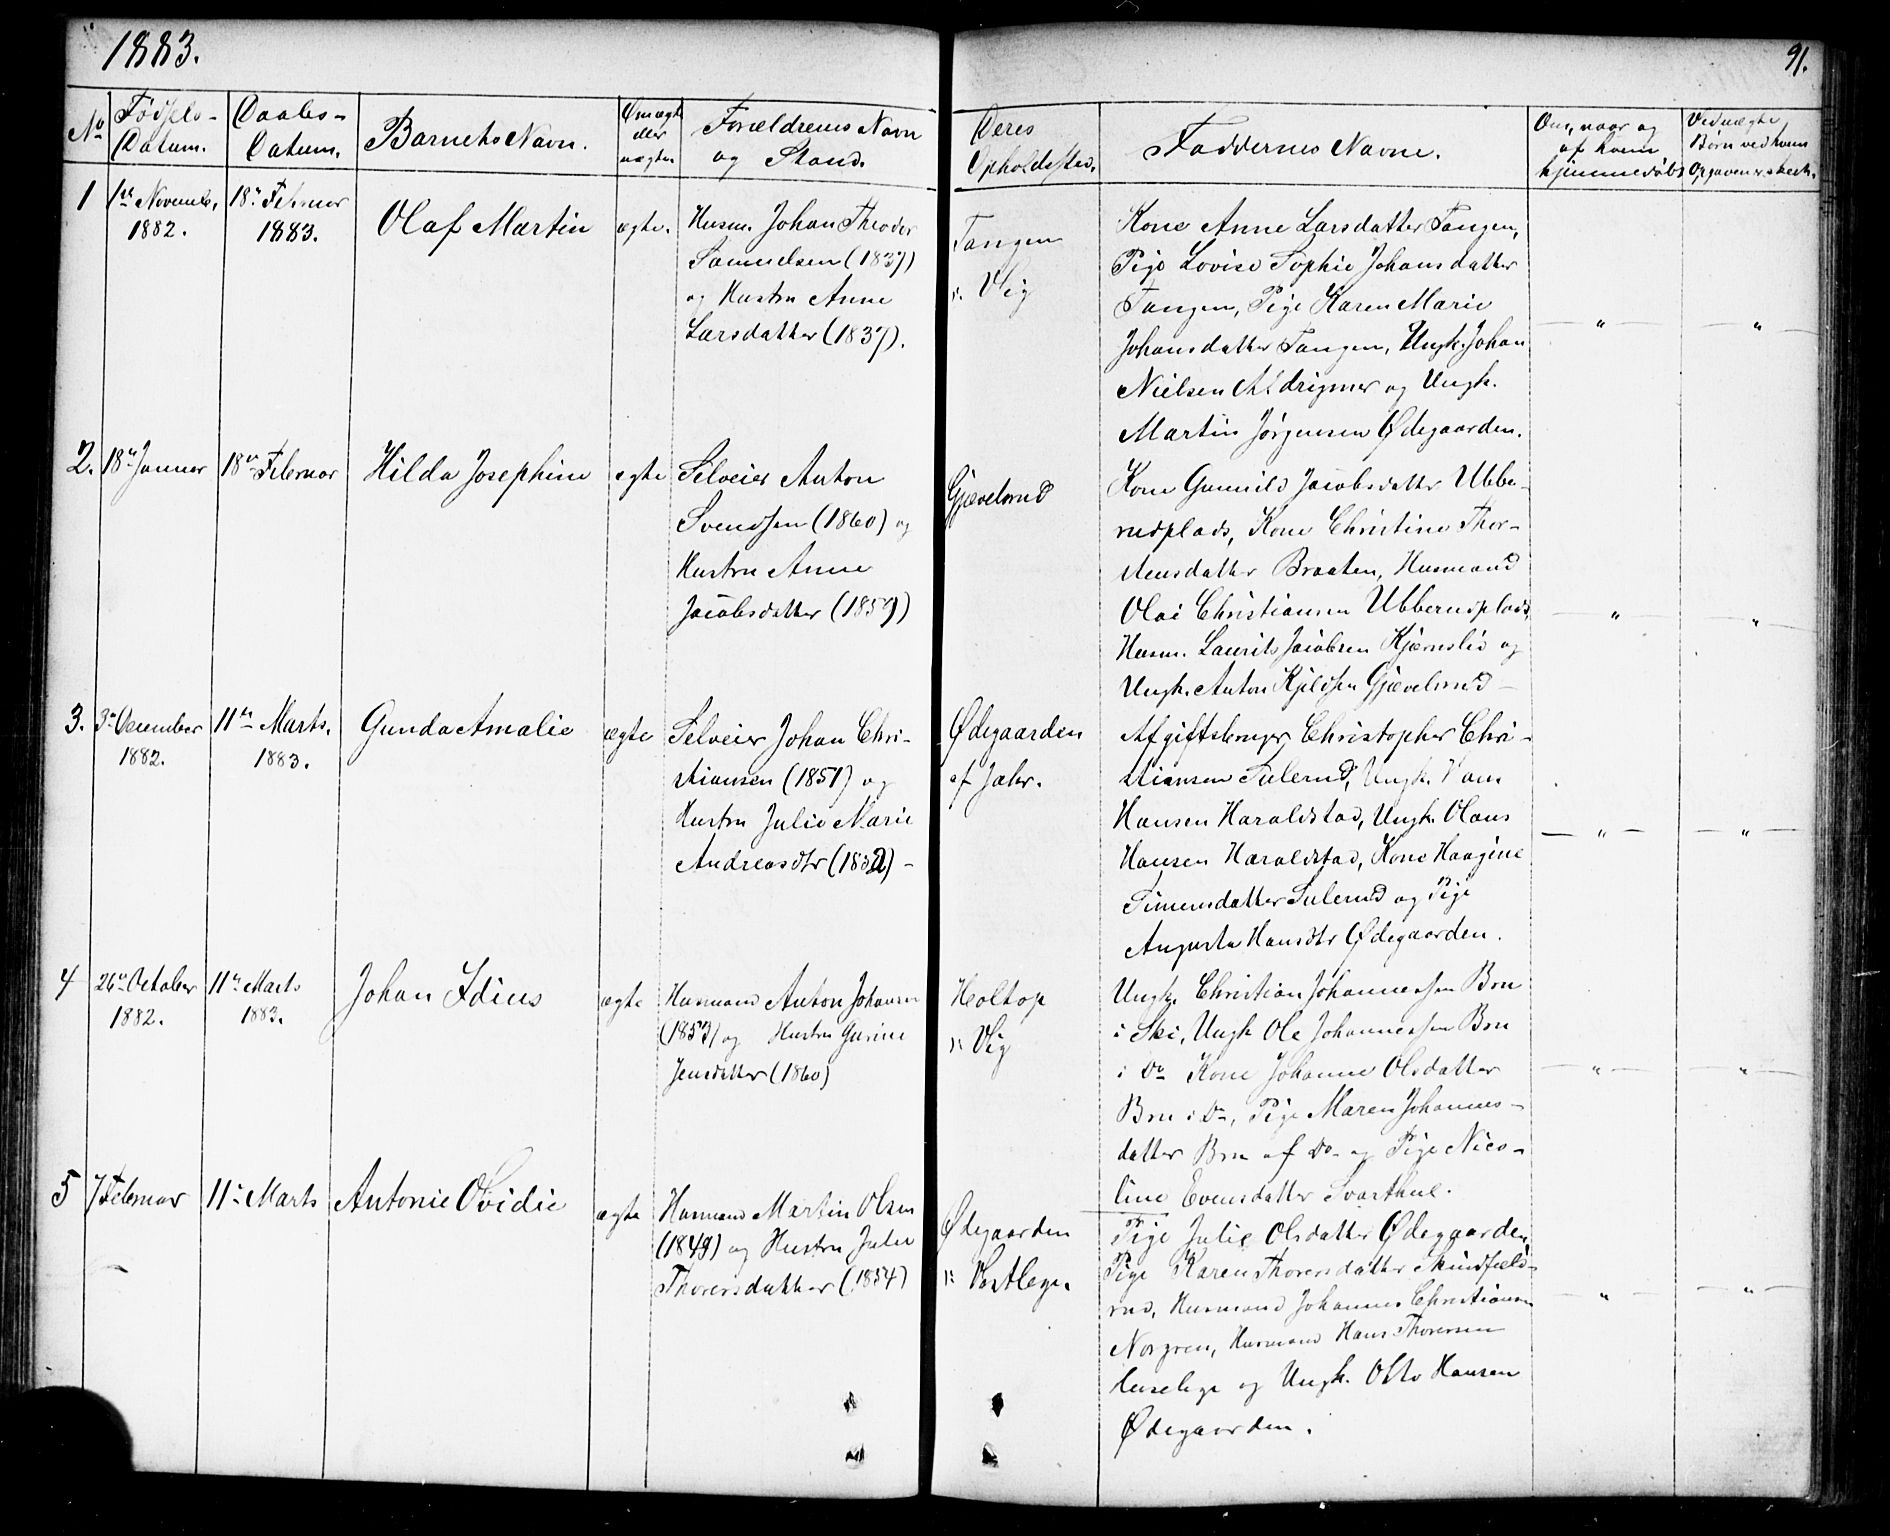 1883.
91.
No
Fødsels-
Datum.
Daabs-
Datum.
Barnets Navn.
Om ægte
eller
uægte
Forældrenes Navn
og Stand.
Deres
Opholdssted.
Faddernes Navne.
Om, naar og
af hvem
hjemmedøbt
Ved uægte
Børn ved hvem
Opgaven er skeet.
1
1ste Novemb.
1882.
18de Februar
1883.
Olaf Martin
ægte.
Husm. Johan Theodor
Samuelsen (1837)
og Hustru Anne
Larsdatter (1837).
Tangen
u. Vig
Kone Anne Larsdatter Tangen,
Pige Lovise Sophie Johansdatter
Tangen, Pige Karen Marie
Johansdatter Tangen, Ungk. Johan
Nielsen Aldrigmer og Ungk.
Martin Jørgensen Ødegaarden.
2.
18de Januar
18de Februar
Hilda Josephine
ægte
Selveier Anton
Svendsen (1860) og
Hustru Anne
Jacobsdatter (1859)
Gjævelsrud
Kone Gunnild Jacobsdatter Ubbe-
rudplads, Kone Christine Thor-
stensdatter Braaten, Husmand
Olai Christiansen Ubberudplads,
Husm. Laurits Jacobsen Kjærnslid og
Ungk. Anton Kjeldsen Gjævelsrud
3.
3de December
1882.
11te Marts.
1883.
Gunda Amalie
ægte
Selveier Johan Chri-
stiansen (1851) og
Hustru Julie Marie
Andreasdtr (1852)
Ødegaarden
af Jahr.
Afgiftsbruger Christopher Chri-
stiansen Sulerud, Ungk. Hans
Hansen Haraldstad, Ungk. Olaus
Hansen Haraldstad, Kone Haagine
Simensdatter Sulerud og Pige
Augusta Hansdtr Ødegaarden.
4
26de October
1882.
11te Marts
1883.
Johan Idius
ægte
Husmand Anton Johansen
(1853) og Hustru Gurine
Jensdatter (1860)
Holtop
u: Vig
Ungk. Christian Johannessen Bru
i Ski, Ungk Ole Johannessen Bru
i Do Kone Johanne Olsdatter
Bru i Do, Pige Maren Johannes-
datter Bru af Do og Pige Nico-
line Evensdatter Svarthul.
5
7 Februar
11te Marts
Antonie Ovidie
ægte
Husmand Martin Olsen
(1849) og Hustru Julie
Thorersdatter (1854)
Ødegaarden
u: Vestlege.
Pige Julie Olsdatter Ødegaarden,
Pige Karen Thorersdatter Skindfæld-
rud, Husmand Johannes Christiansen
Norgren, Husmand Hans Thorersen
Huselege og Ungk. Otto Hansen
Ødegaarden.